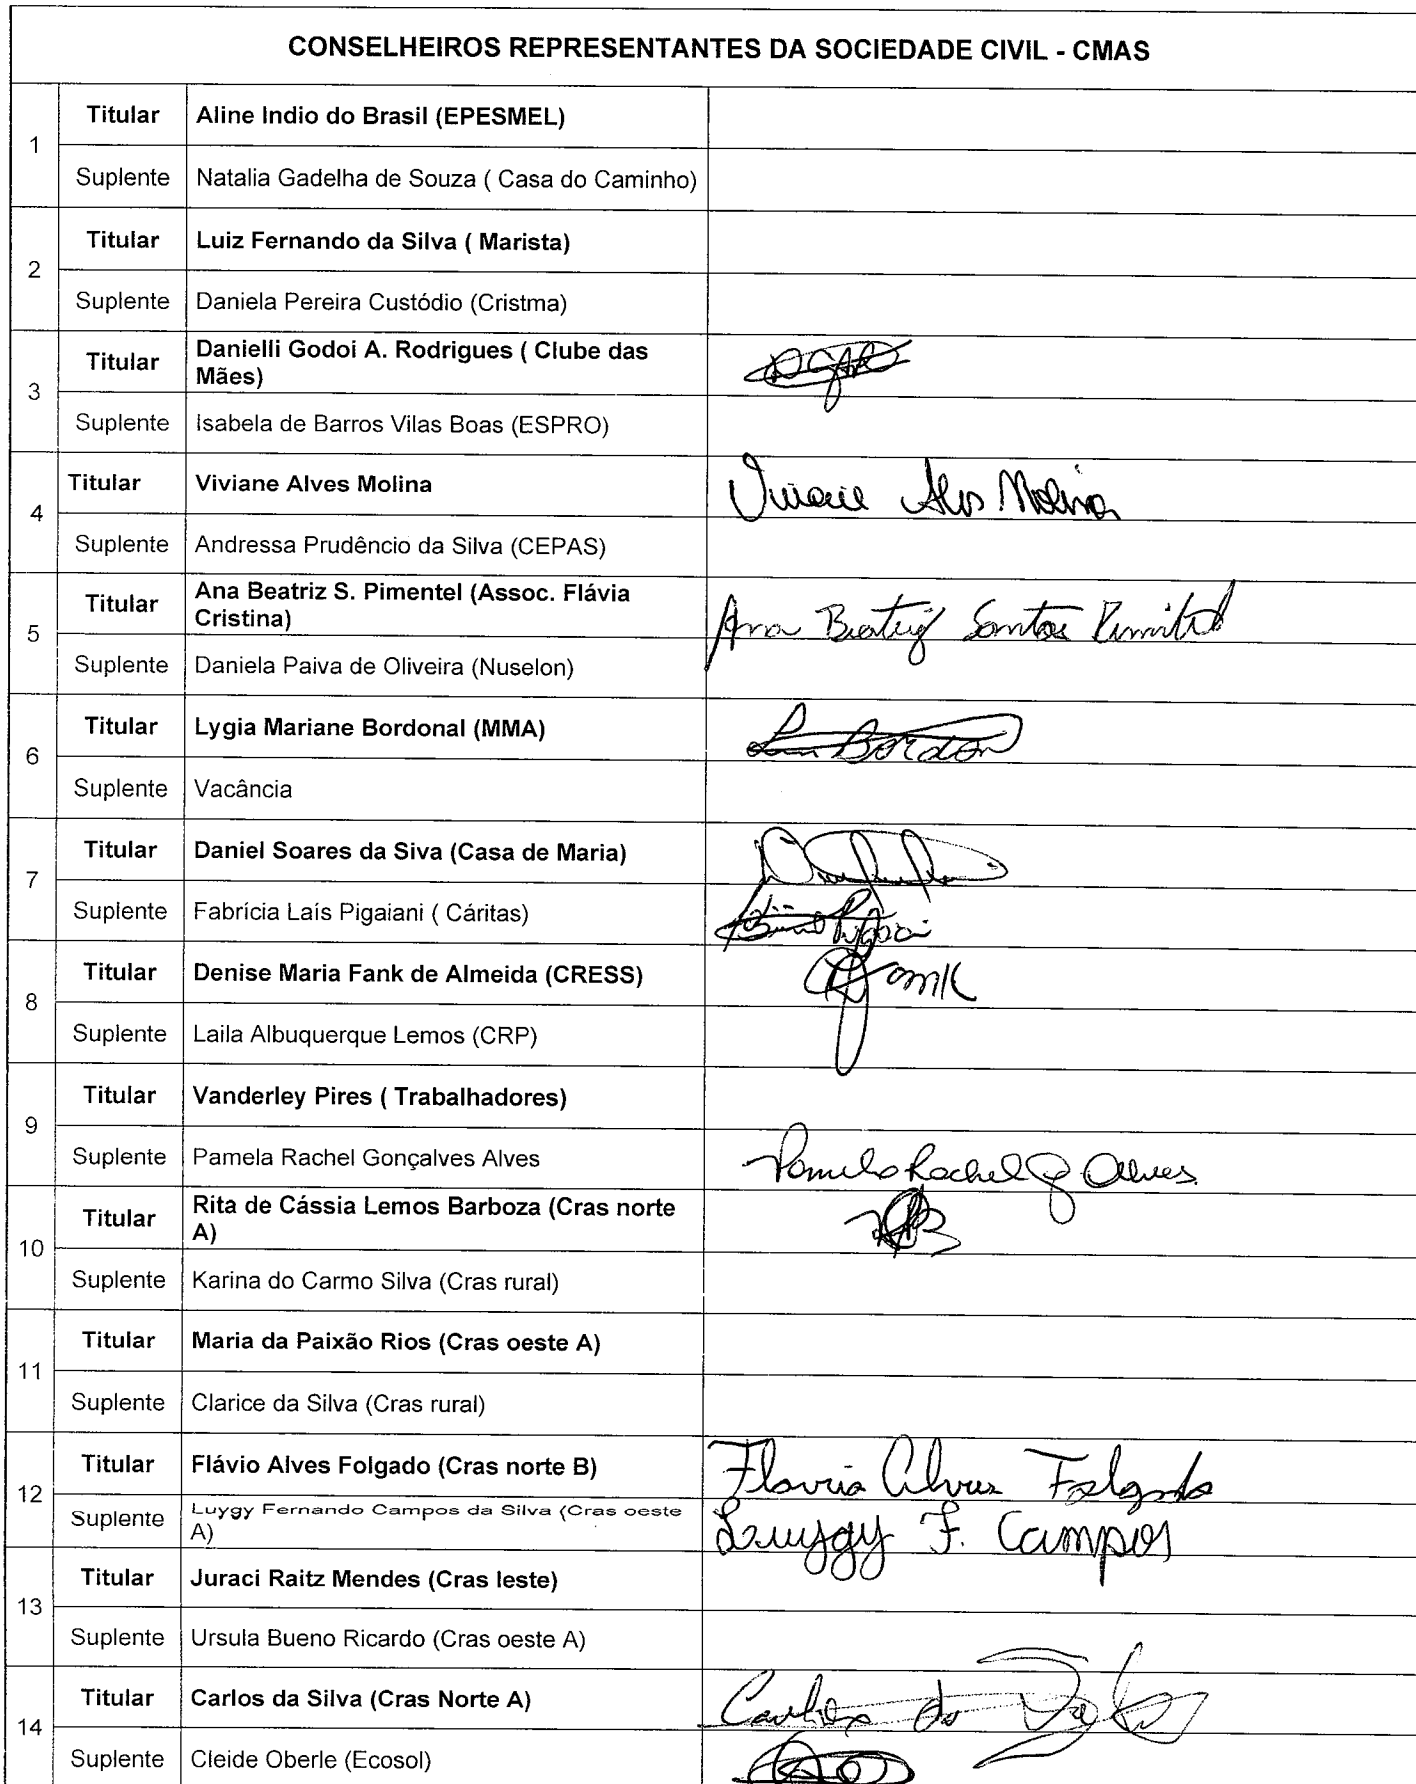 CONSELHEIROS REPRESENTANTES DA SOCIEDADE CIVIL - CMAS
1
Titular Aline Indio do Brasil (EPESMEL)
Suplente Natalia Gadelha de Souza ( Casa do Caminho)
2
Titular Luiz Fernando da Silva ( Marista)
Suplente Daniela Pereira Custódio (Cristma)
3
Titular Danielli Godoi A. Rodrigues ( Clube das
Mães)
Suplente Isabela de Barros Vilas Boas (ESPRO)
4
Titular Viviane Alves Molina Viviane Alves Molina
Suplente Andressa Prudêncio da Silva (CEPAS)
5
Titular Ana Beatriz S. Pimentel (Assoc. Flávia
Cristina) Ana Beatriz Santos Pimentel
Suplente Daniela Paiva de Oliveira (Nuselon)
6
Titular Lygia Mariane Bordonal (MMA)
Suplente Vacância
7
Titular Daniel Soares da Siva (Casa de Maria)
Suplente Fabrícia Laís Pigaiani ( Cáritas)
8
Titular Denise Maria Fank de Almeida (CRESS)
Suplente Laila Albuquerque Lemos (CRP)
9
Titular Vanderley Pires ( Trabalhadores)
Suplente Pamela Rachel Gonçalves Alves Pamela Rachel G Alves
10
Titular Rita de Cássia Lemos Barboza (Cras norte
A)
Suplente Karina do Carmo Silva (Cras rural)
11
Titular Maria da Paixão Rios (Cras oeste A)
Suplente Clarice da Silva (Cras rural)
12
Titular Flávio Alves Folgado (Cras norte B) Flavio Alves Folgado
Suplente Luygy Fernando Campos da Silva (Cras oeste
A) Luygy F. Campos
13
Titular Juraci Raitz Mendes (Cras leste)
Suplente Ursula Bueno Ricardo (Cras oeste A)
14
Titular Carlos da Silva (Cras Norte A) Carlos da
Suplente Cleide Oberle (Ecosol)